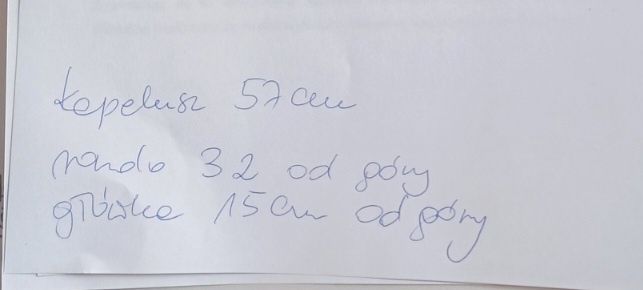 kapelusz 57 cm
rondo 32 od góry
główka 15 cm od góry